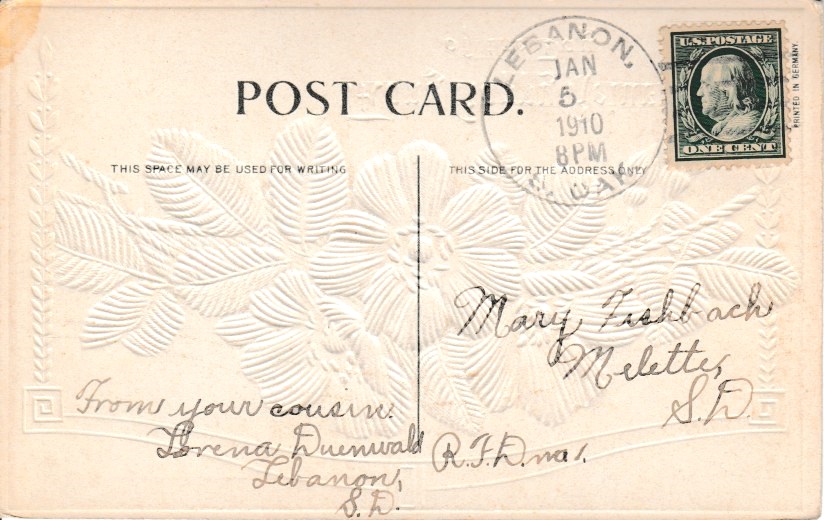 LEBANON,
JAN
5
1910
8PM
S. DAK.
U.S. POSTAGE
ONE CENT
PRINTED IN GERMANY
POST CARD.
THIS SPACE MAY BE USED FOR WRITING
THIS SIDE FOR THE ADDRESS ONLY
Mary Fishbach
Meletter,
S.D.
R.F.D. no 1.
From your cousin.
Lorena Duenwald
Lebanon,
S.D.